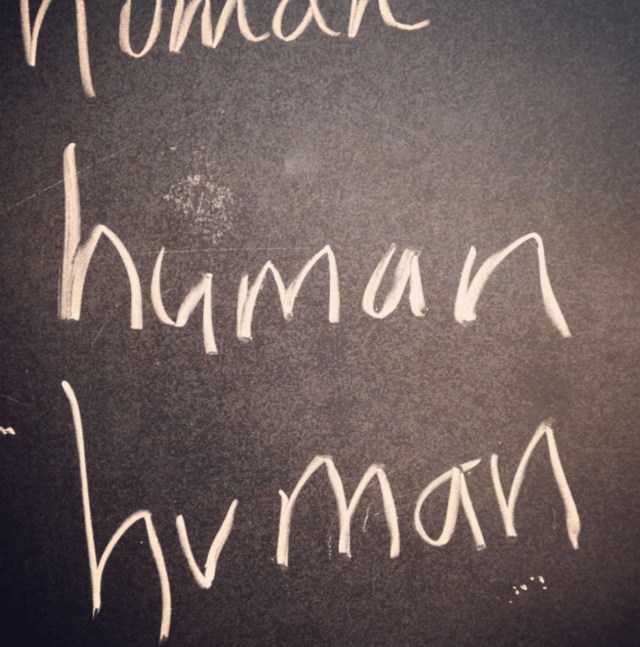 human
human
human